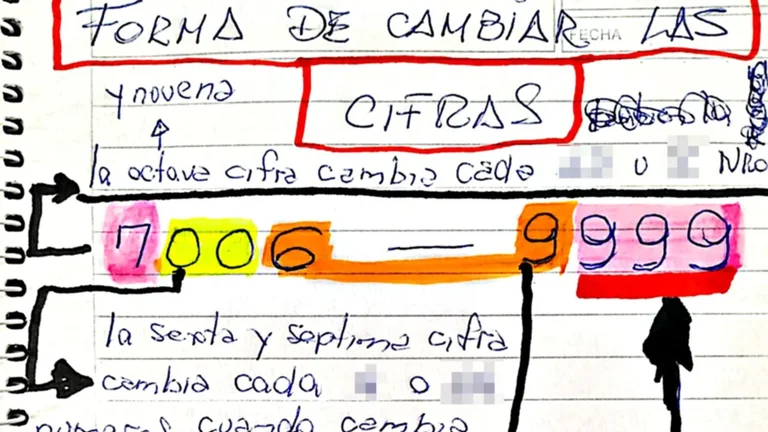 FORMA DE CAMBIAR LAS
FECHA
CIFRAS
y novena
la octava cifra cambia cada u NRO
7006 — 9999
la sexta y septima cifra
cambia cada o
numeros cuando cambia